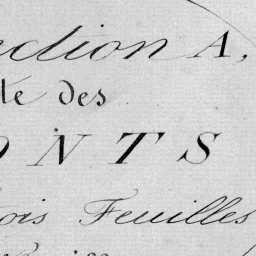 ection A,
te des
ONTS
ois Feuilles